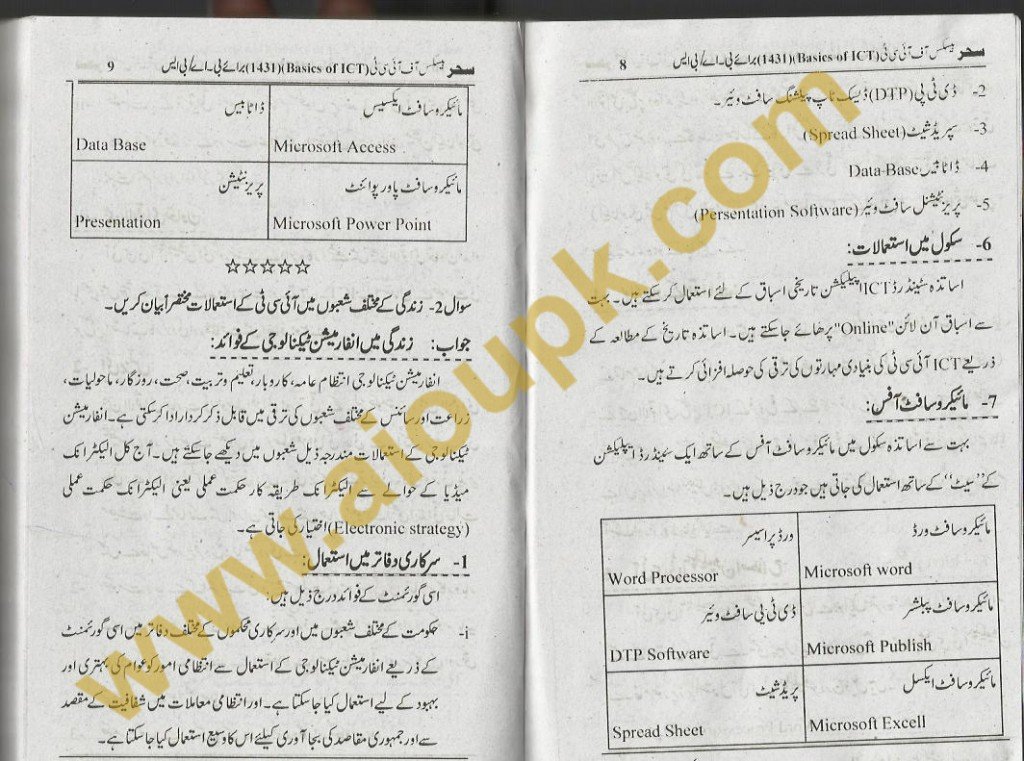 سحر بیسکس آف آئی سی ٹی (Basics of ICT)(1431) برائے بی۔اے/بی ایس 8
2- ڈی ٹی پی (DTP) ڈیسک ٹاپ پبلشنگ سافٹ وئیر۔
3- سپریڈ شیٹ (Spread Sheet)
4- ڈاٹا بیس Data-Base
5- پریزنٹیشنل سافٹ وئیر (Persentation Software)
6- سکول میں استعمالات:
اساتذہ سٹینڈرڈ ICT اپیلیکشن تاریخی اسباق کے لئے استعمال کر سکتے ہیں۔ بہت
سے اسباق آن لائن "Online" پڑھائے جا سکتے ہیں۔ اساتذہ تاریخ کے مطالعہ کے
ذریعے ICT آئی سی ٹی کی بنیادی مہارتوں کی ترقی کی حوصلہ افزائی کرتے ہیں۔
7- مائیکرو سافٹ آفس:
بہت سے اساتذہ سکول میں مائیکرو سافٹ آفس کے ساتھ ایک سٹینڈرڈ اپیلیکشن
کے "سیٹ" کے ساتھ استعمال کی جاتی ہیں جو درج ذیل ہیں۔
مائیکرو سافٹ ورڈ ورڈ پراسیسر
Microsoft word Word Processor
مائیکرو سافٹ پبلشر ڈی ٹی پی سافٹ وئیر
Microsoft Publish DTP Software
مائیکرو سافٹ ایکسل پریڈ شیٹ
Microsoft Excell Spread Sheet
سحر بیسکس آف آئی سی ٹی (Basics of ICT)(1431) برائے بی۔اے/بی ایس 9
مائیکرو سافٹ ایکسیس ڈاٹا بیس
Microsoft Access Data Base
مائیکرو سافٹ پاور پوائنٹ پریزنٹیشن
Microsoft Power Point Presentation
☆☆☆☆☆
سوال 2- زندگی کے مختلف شعبوں میں آئی سی ٹی کے استعمالات مختصراً بیان کریں۔
جواب: زندگی میں انفارمیشن ٹیکنالوجی کے فوائد:
انفارمیشن ٹیکنالوجی انتظام عامہ، کاروبار، تعلیم و تربیت، صحت، روزگار، ماحولیات،
زراعت اور سائنس کے مختلف شعبوں کی ترقی میں قابل ذکر کردار ادا کر سکتی ہے۔ انفارمیشن
ٹیکنالوجی کے استعمالات مندرجہ ذیل شعبوں میں دیکھے جا سکتے ہیں۔ آج کل الیکٹرانک
میڈیا کے حوالے سے الیکٹرانک طریقہ کار حکمت عملی یعنی الیکٹرانک حکمت عملی
(Electronic strategy) اختیار کی جاتی ہے۔
1- سرکاری دفاتر میں استعمال:
اسی گورنمنٹ کے فوائد درج ذیل ہیں:
i- حکومت کے مختلف شعبوں میں اور سرکاری محکموں کے مختلف دفاتر میں اسی گورنمنٹ
کے ذریعے انفارمیشن ٹیکنالوجی کے استعمال سے انتظامی امور کو عوام کی بہتری اور
بہبود کے لیے استعمال کیا جا سکتا ہے۔ اور انتظامی معاملات میں شفافیت کے مقصد
سے اور جمہوری مقاصد کی بجا آوری کیلئے اس کا وسیع استعمال کیا جا سکتا ہے۔
www.aioupk.com